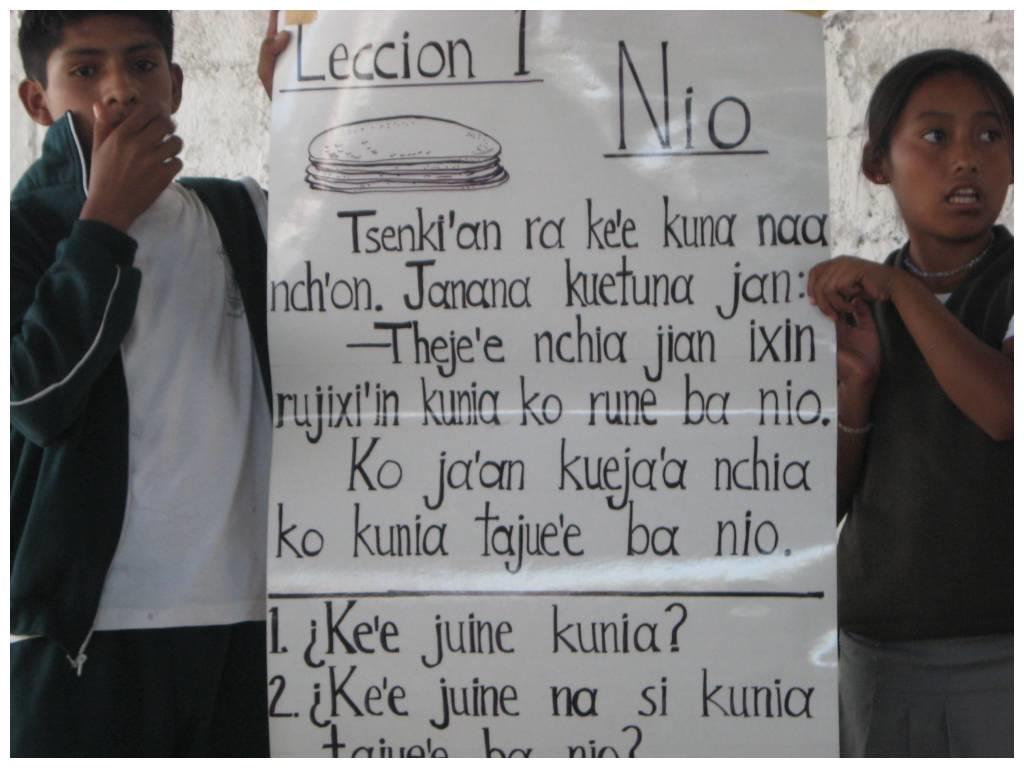 Leccion 1
Nio
Tsenki'an ra ke'e kuna naa
nch'on. Janana kuetuna jan:
—Theje'e nchia jian ixin
rujixi'in kunia ko rune ba nio.
Ko ja'an kueja'a nchia
ko kunia tajue'e ba nio.
1. ¿Ke'e juine kunia?
2. ¿Ke'e juine na si kunia
tajue'e ba nio?